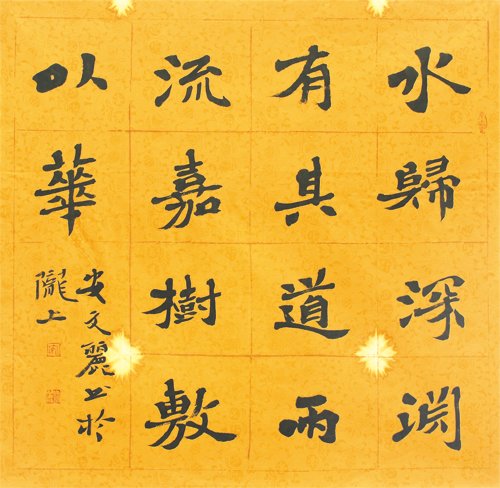 水歸深淵
有其道雨
流嘉樹敷
以華
安文麗书於
隴上